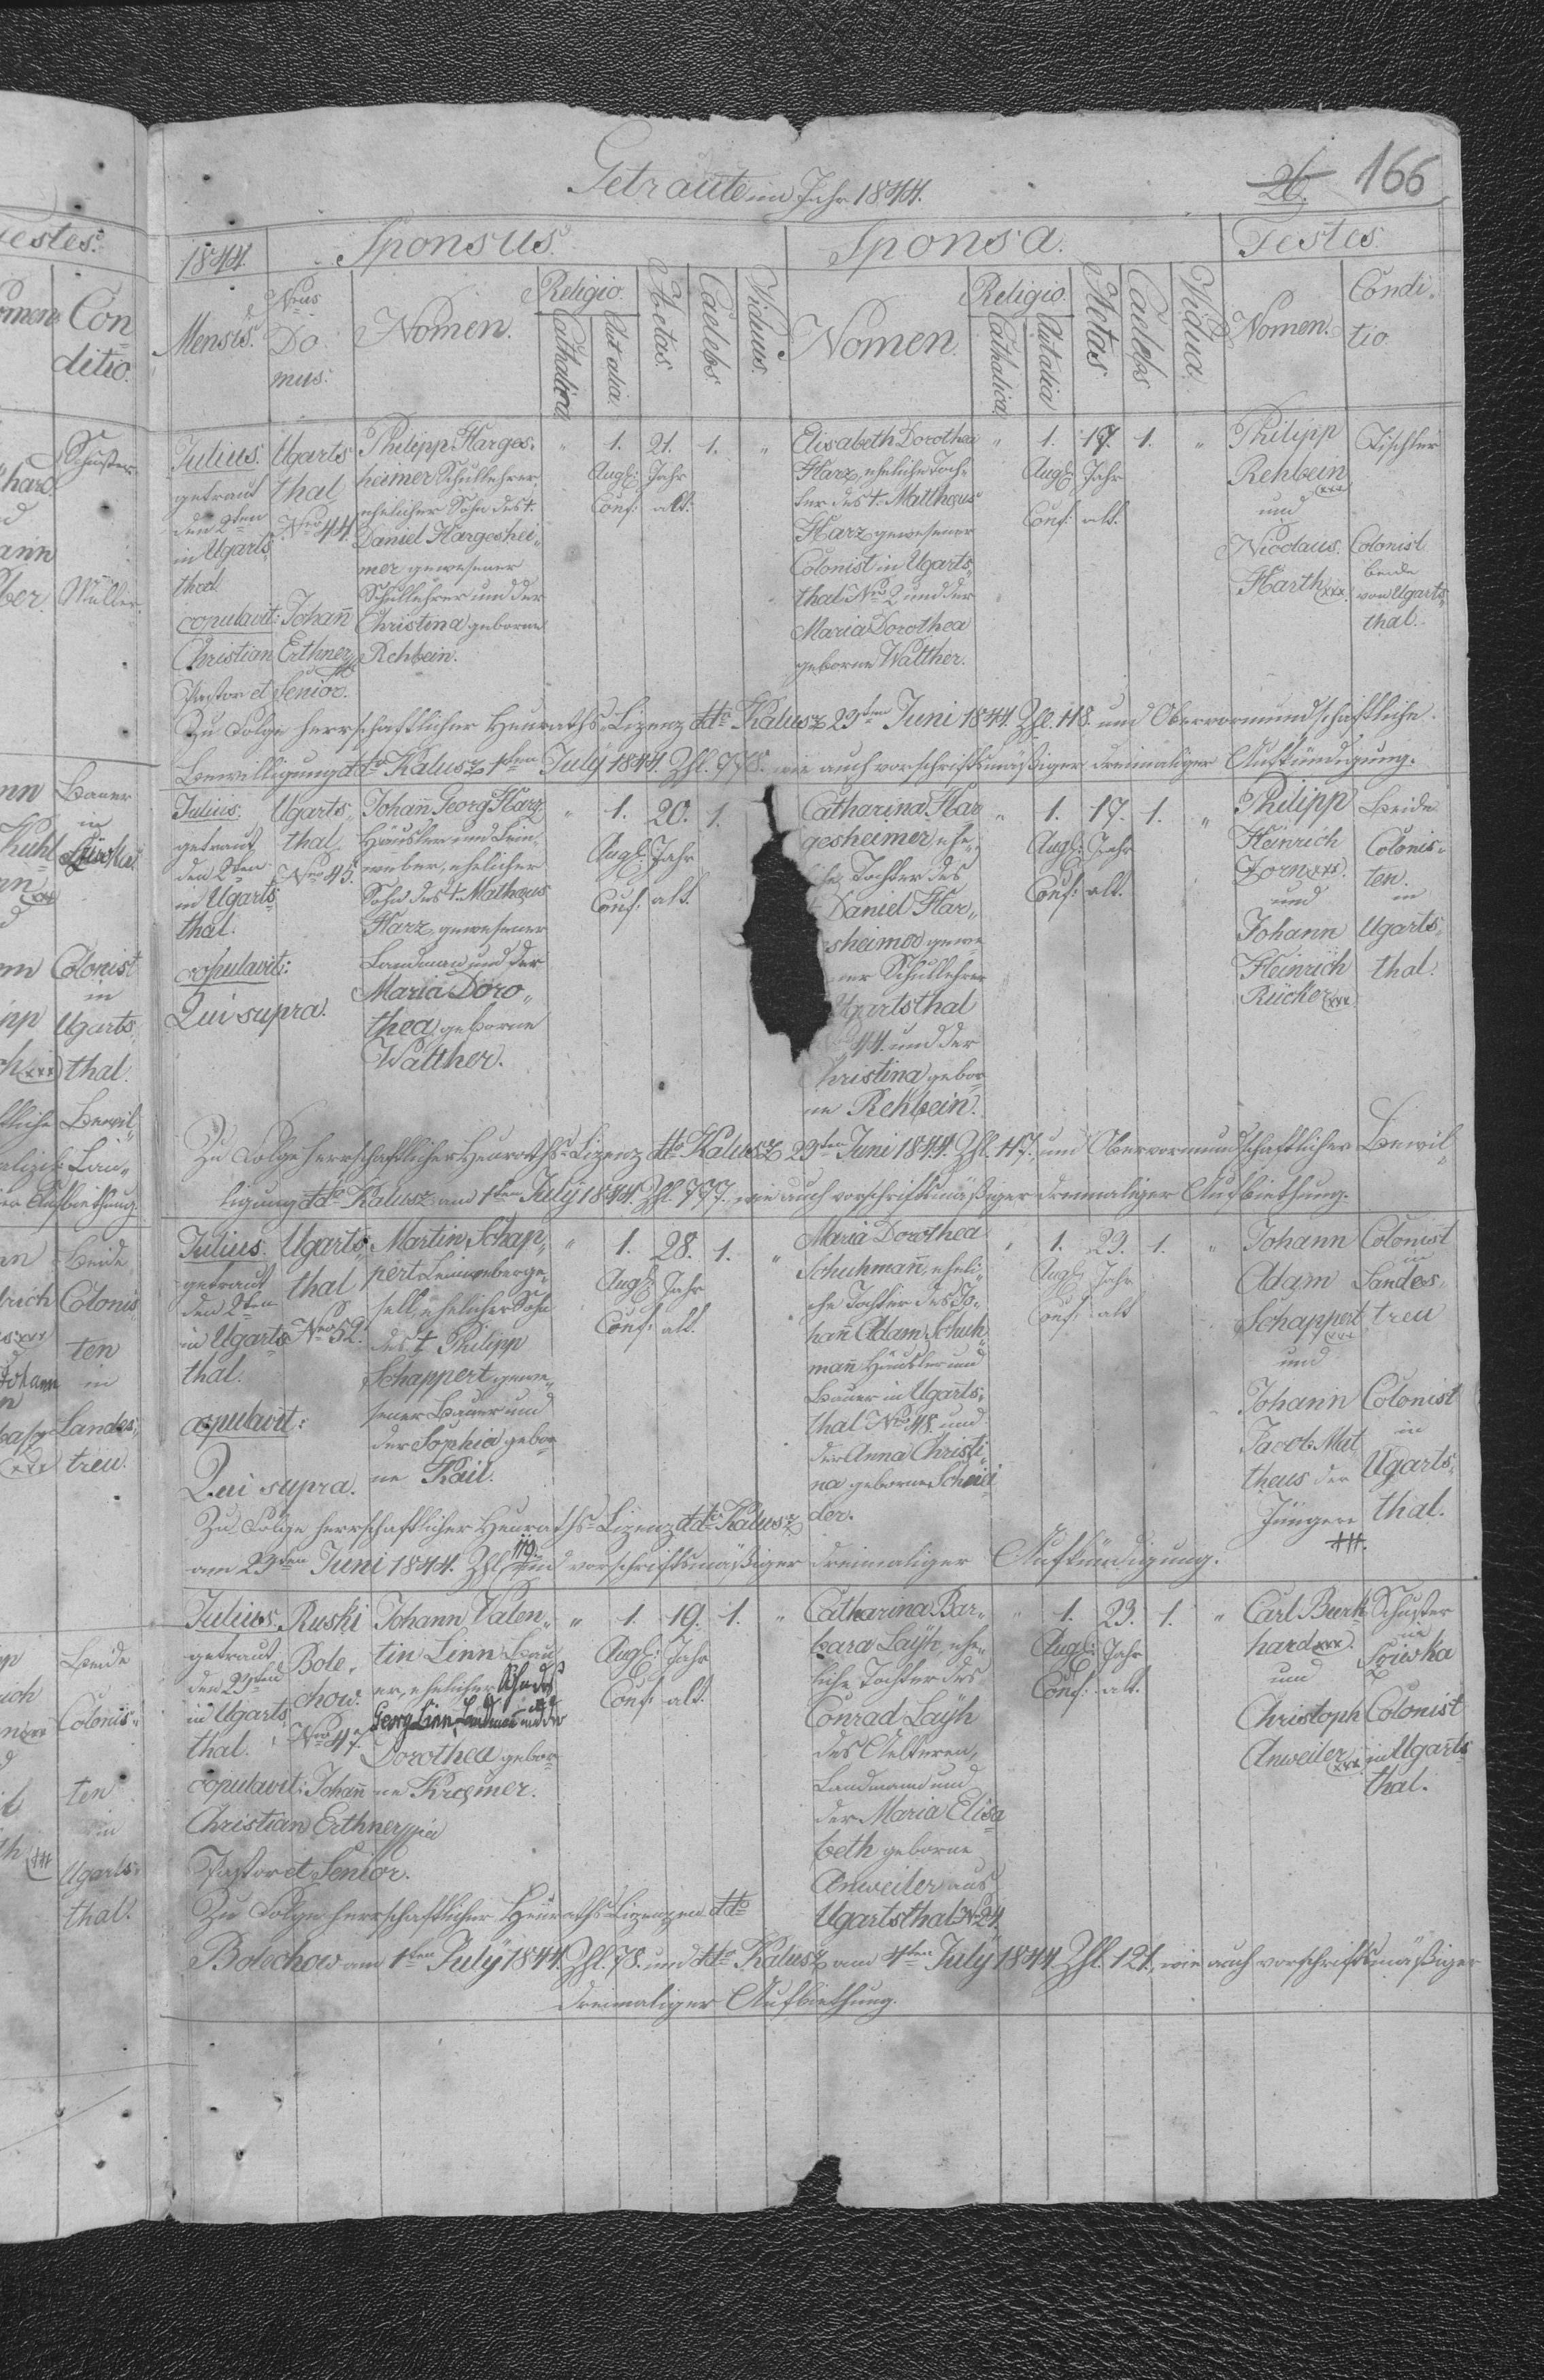 Getraute im Jahr 1844.
26. 166
1844. Sponsus. Sponsa. Testes.
Mensis. Nrus Domus. Nomen. Religio. Catholica Aut alia. Aetas. Caelebs. Viduus. Nomen. Religio. Catholica Aut alia Aetas Caelebs Vidua. Nomen. Conditio
Julius.
getraut
den 2ten
in Ugarts
thal
copulavit: Johañ
Christian Erthner
Pastor et Senior.
Ugarts
thal
Nro 44.
Philipp Harges-
heimer Schullehrer,
ehelicher Sohn des †.
Daniel Hargeshei-
mer gewesener
Schullehrer und der
Christina geborne
Rehbein.
" 1. 21. 1. "
Augs: Jahr
Conf: alt:
Elisabeth Dorothea
Harz, eheliche Toch-
ter des †. Mattheus
Harz gewesener
Colonist in Ugarts-
thal Nro 2 und der
Maria Dorothea
geborne Walther.
" 1. 17. 1. "
Augs: Jahr
Conf: alt.
Philipp
Rehbein
xxx
und
Nicolaus
Harth xxx
Tischler
Colonist
beide
von Ugarts-
thal.
Zu Folge herrschaftlicher Heuraths-Lizenz ddo Kalusz 29ten Juni 1844. Zhl. 118. und Obervormundschaftliche
Bewilligung ddo Kalusz 1ten July 1844. Zhl. 778. wie auch vorschriftsmäßiger dreimaliger Aufkündigung.
Julius.
getraut
den 2ten
in Ugarts
thal.
copulavit:
Qui supra.
Ugarts-
thal.
Nro 45.
Johañ Georg Harz
Häusler und Lein-
weber, ehelicher
Sohn des †. Matheus
Harz gewesener
Landman und der
Maria Doro-
thea geborne
Walther.
" 1. 20. 1.
Augs: Jahr
Conf: alt.
Catharina Har
gesheimer, ehe-
Tochter des
Daniel Har-
sheimer gewe
ner Schullehrer
Ugartsthal
44. und der
Christina gebor
ne Rehbein.
" 1. 17. 1. "
Augs: Jahr
Conf: alt.
Philipp
Heinrich
Zorn xxx.
und
Johann
Heinrich
Rücker xxx
Beide
Colonis-
ten.
in
Ugarts-
thal.
Zu Folge herrschaftlicher Heuraths-Lizenz ddo Kalusz 29ten Juni 1844. Zhl. 117. und Obervormundschaftlicher Bewil-
ligung ddo Kalusz am 1ten July 1844. Zhl. 777. wie auch vorschriftsmäßiger dreimaliger Aufbiethung.
Julius.
getraut
den 2ten
in Ugarts
thal.
copulavit:
Qui supra.
Ugarts-
thal
Nro 52.
Martin Schap-
pert Leinweberge-
sell, ehelicher Sohn
des † Philipp
Schappert gewe-
sener Bauer und
der Sophia gebor
ne Kail.
" 1. 28. 1. "
Augs: Jahr
Conf: alt.
Maria Dorothea
Schuhmañ, eheli-
che Tochter des Jo-
hañ Adam Schuh-
mañ Häusler und
Bauer in Ugarts-
thal Nro 48. und
der Anna Christi-
na geborne Schnei-
der.
" 1. 23. 1. "
Augs: Jahr
Conf: alt
Johann
Adam
Schappert
xxx
und
Johann
Jacob Mat
theus der
Jüngere
+++.
Colonist
in
Landes-
treu
Colonist
in
Ugarts-
thal.
Zu Folge herrschaftlicher Heuraths-Lizenz ddo Kalusz
am 29ten Juni 1844. Zhl. 119. und vorschriftsmäßiger dreimaliger Aufkündigung.
Julius.
getraut
den 23ten
in Ugarts
thal.
copulavit: Johañ
Christian Erthner
Pastor et Senior.
Ruski
Bole-
chow.
Nro 47.
Johann Valen-
tin Linn Bau
er, ehelicher Sohn des
Georg Linn Landmañ und der
Dorothea gebor
ne Kremer.
" 1. 19. 1. "
Augs: Jahr
Conf: alt:
Catharina Bar-
bara Laÿh ehe-
liche Tochter des
Conrad Laÿh
des Aelteren,
Landmann und
der Maria Elisa
beth geborne
Anweiler aus
Ugartsthal No 24.
" 1. 23. 1. "
Augs: Jahr
Conf: alt.
Carl Burk
hard xxx.
und
Christoph
Anweiler xxx
Schuster
in
Siwka
Colonist
in Ugarts
thal.
Zu Folge herrschaftlicher Heuraths-Lizenzen ddo
Bolechow am 1ten July 1844 Zhl. 78. und ddo Kalusz am 4ten July 1844 Zhl. 121, wie auch vorschriftsmäßiger
dreimaliger Aufbiethung.